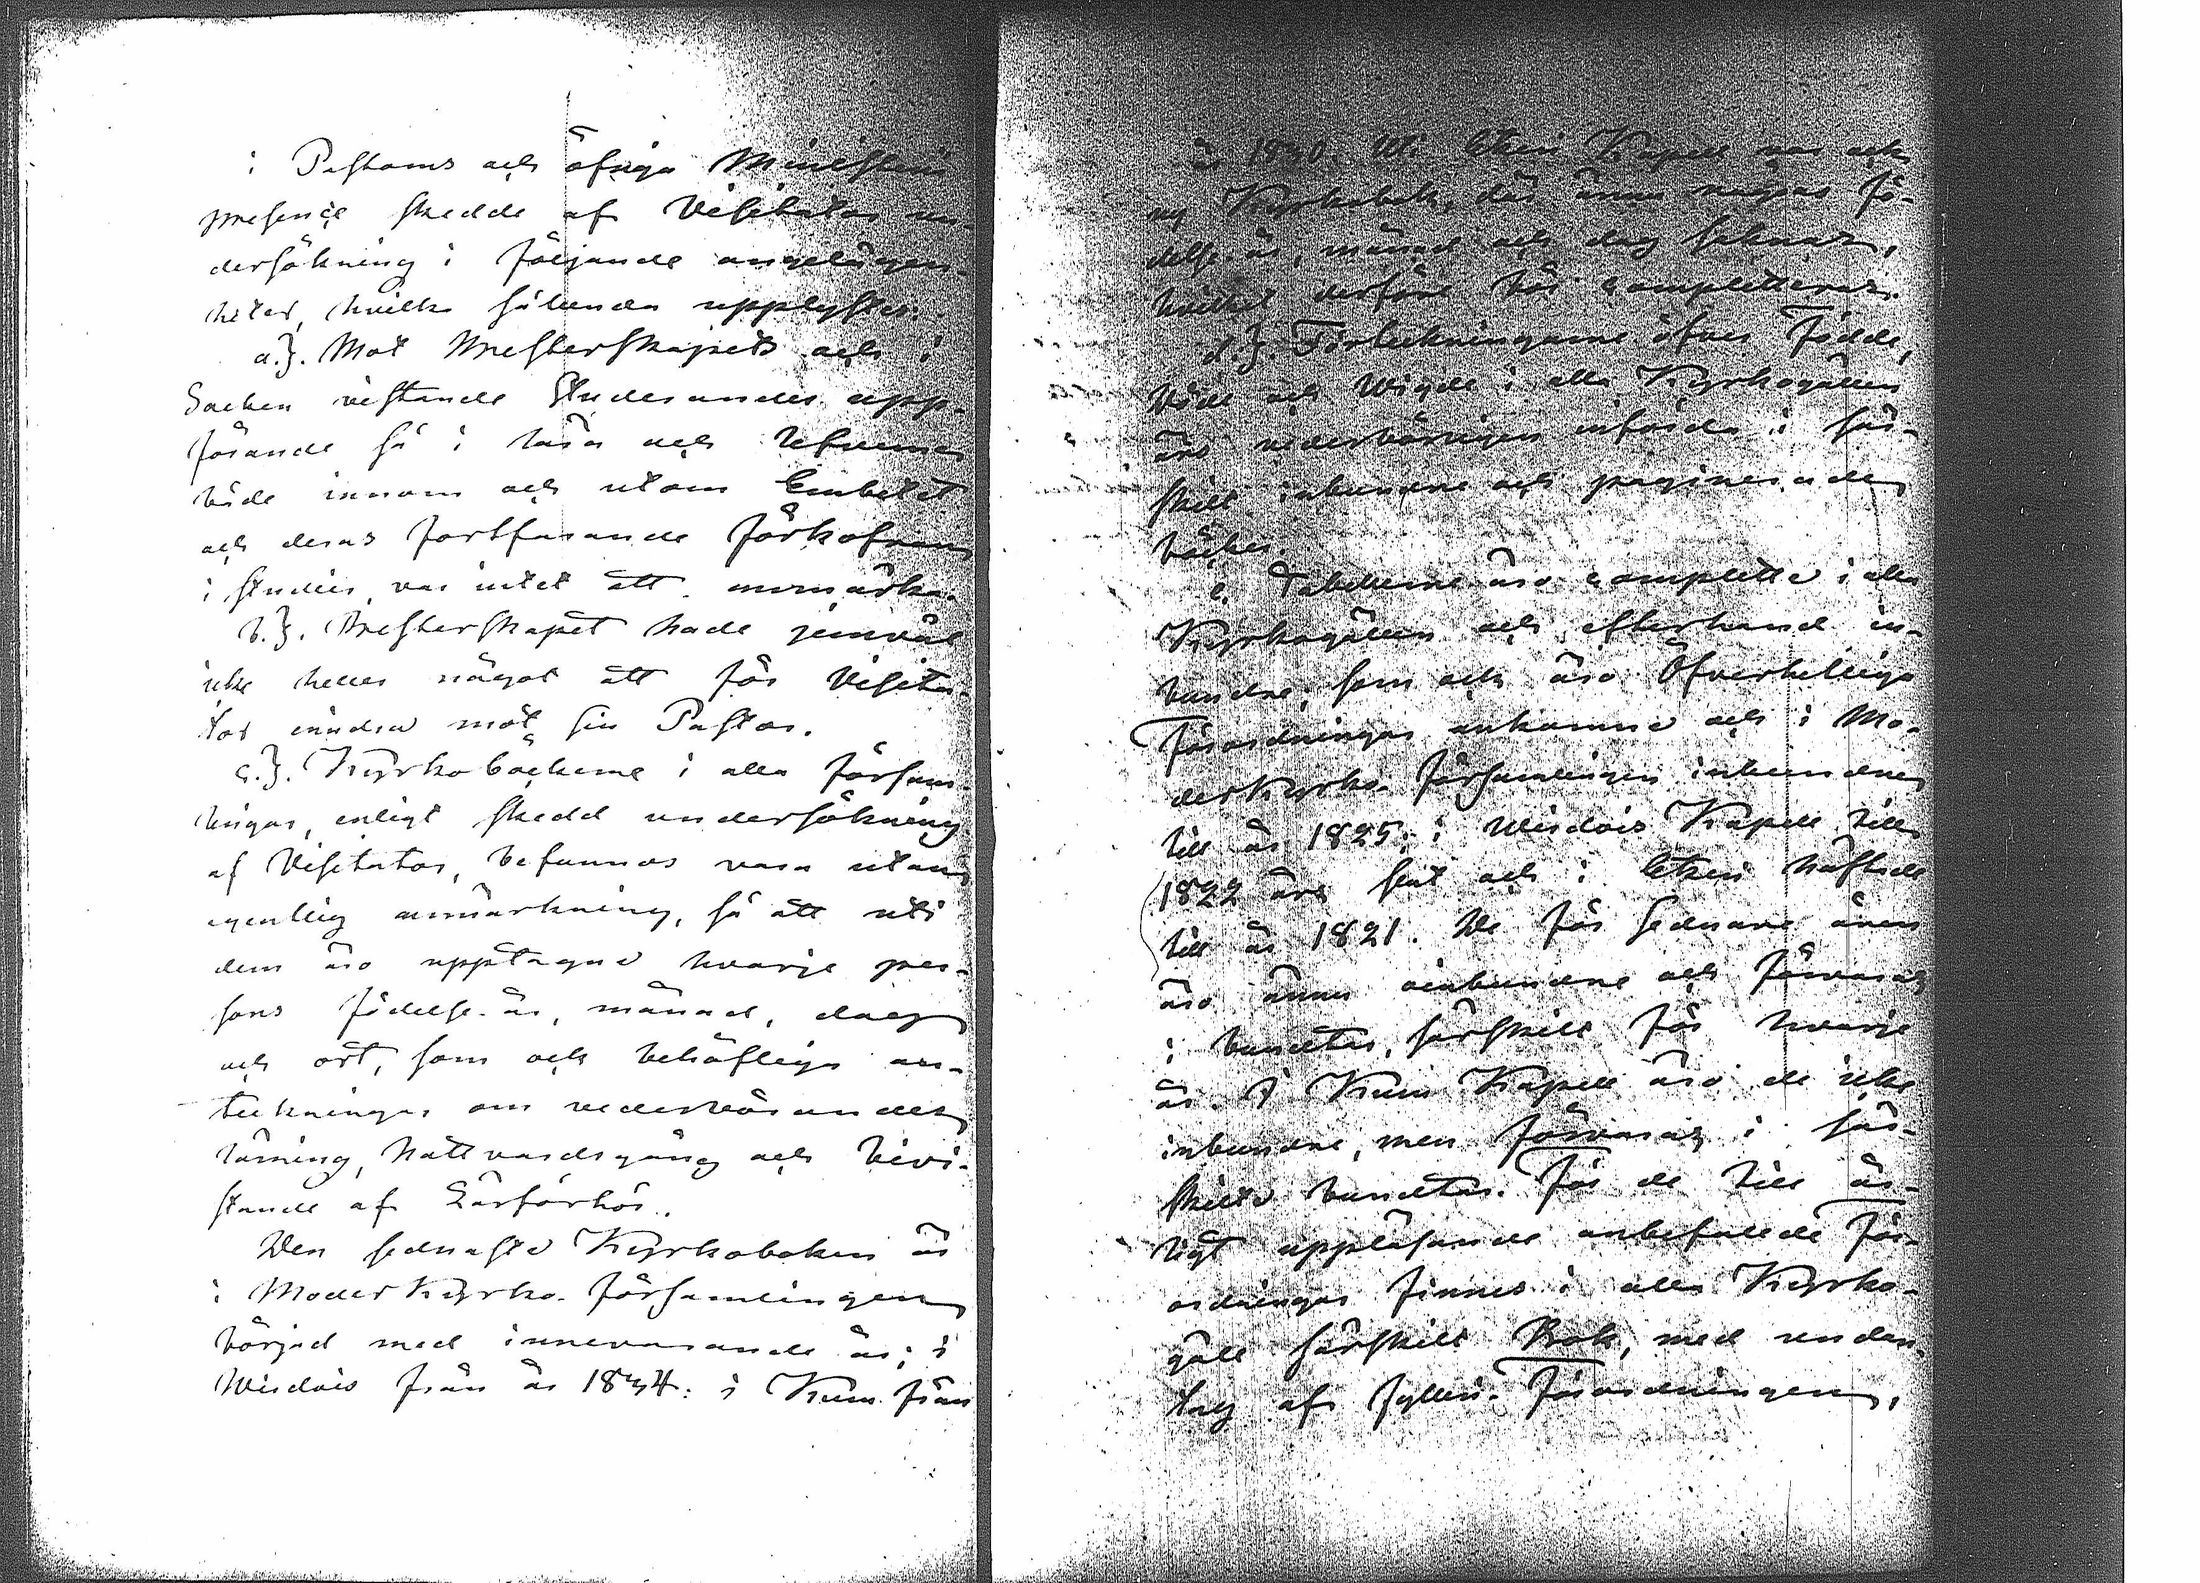 i Pastorns och öfriga Ministerii
presence skedde af Visitator un-
dersökning i följande angelägen-
heter, hvilka sålunda upplystes:
a.}. Mot Presterskapets och i
Socken vistande Studerandes upp-
förande så i lära och lefverne
både innom och utom Embetet
och deras fortfarande förkofran
i studier, var intet att anmärka.
b.}. Presterskapet hade jemväl
icke heller något att för Visita-
tor mot sin Pastor.
c.}. Kyrkoböckerne i alla försam-
lingar, enligt skedd undersökning
af Visitator, befunnos vara utan
egentlig anmärkning, så att uti
dem äro upptagne hvarje per-
sons födelse-år, månad, dag
och ort, som och behöfliga an-
teckningar om vederbörandes
läsning, nattvardsgång och bivi-
stande af Läsförhör.
Den sednaste Kyrkoboken är
i Moderkyrko-församlingen
börjad med innevarande år; i
från år 1834: i Kum från
år 1830. Uti Kapell var och
ny Kyrkobok, där ännu någras fö-
delse-år, månad och dag saknas,
hvilket derföre bör completteras.
d.}. Förteckningarne öfver Födde,
Döde och Wigde i alla Kyrkogällen
äro vederbörligen införda i sär-
skilt inbundne och paginerade
böcker.
e. Tabellerne äro complette i alla
Kyrkogällen och efterhand in-
bundne, som och äro Öfverhetliga
Förordningar ankomne och i Mo-
derkyrko-församlingen inbundne
till år 1825; i Kapell till
1822 års slut och i häftade
till år 1821. De för sednare åren
äro ännu oinbundne och förvaras
i bundtar, särskilt för hvarje
år. I Kum Kapell äro de icke
inbundne, men förvaras i sär-
skilte bundtar. För de till år-
ligt uppläsande anbefallde För-
ordningar finnes i alla Kyrko-
gäll särskilt Bok, med undan-
tag af Förordningen,